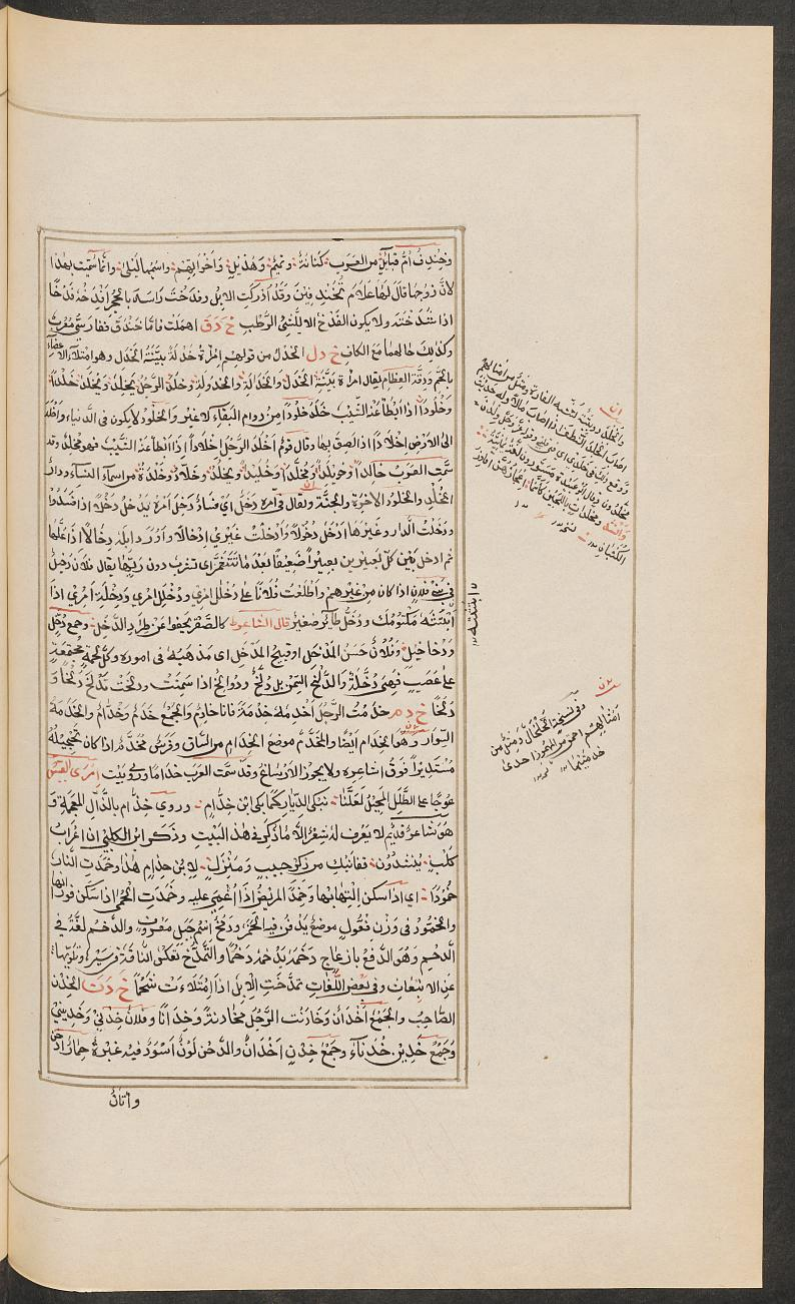 وخِنْدِفُ اُمُّ قبايلَ من العَرَب كَنانةُ وتميمٌ وَهُذَيلٌ وَاَخوانِهم واسْمُها لَيْلَى وانّما سُمّيت بهذا
لانّ زوجها قالَ لَها عَلامَ تُخَنْدِفِينَ وَقَدْ اَدْرَكَتِ الابِلُ وفدَخْتُ رَاسَهُ بالحجر اَفْدَخُهُ فَدْخًا
اذا شَدَخْتَه ولا يكون الفَدْخُ الا للشّئِ الرَّطْبِ خ د ق اهملت فامّا خَنْدَقٌ ففارسَىٌّ مُعْرَبٌ
وكذٰلِكَ حالهما مَعَ الكافِ خ د ل الخَدْلُ من قولهم امْرَاةٌ خَدْلَةٌ بيّنَةُ الخَدَلِ وهو امتلاء الاعضاءِ
باللحم ودِقّةُ العِظام يقال امراة بَيّنَةُ الخَدَلِ والخَدالَةِ والخُدولَةِ وخلَدَ الرَّجلُ يَخْلِدُ ويَخْلُدُ خَلْدًا
وخُلُودًا اذا ابطأ عَنْهُ الشَّيْبُ خَلَدَ خُلودًا مِن دوام البَقاء لا غير والخلودُ لا يكون فى الدنيا واَخْلَدَ
الى الارْضِ اِخلادًا اذا لَصِقَ بها وقال قومٌ اَخْلَدَ الرَّجُلُ اِخلادًا اِذا ابطأ عَنْهُ الشَّيْبُ فهو مُخْلِدٌ وقد
سَمَّتِ العَرَبُ خالِدًا وخُوَيْلِدًا ومُخَلَّدًا وخُلَيْدًا ويَخْلُدُ وخَلّادٌ وخَلْدَةُ من اسماء النساء ودارُ
الخُلْدِ والخلود الاخِرةُ والجنّة ويقال فى امره دَخَلٌ اىْ فسادٌ دَخِلَ اَمرُه يَدْخَلُ دَخَلًا اذا فَسَدَ
ودَخَلْتُ الدار وغيرَها اَدْخُلُ دُخُولًا وَاَدْخَلْتُ غَيْرِي اِدْخالًا وَاَوْرَد ابِلَه دِخالًا اذا عَلَّها
ثم ادخل بَيْن كلّ بعيرين بعيرًا ضَعيفًا بَعْدَ ما تَتَغَمَّر اى تشرب دون رِيّها يقال فلانٌ دَخِيلٌ
فى بَنى فلانٍ اذا كان مِن غَيْرِهم وَاَطْلَعْتُ فُلانًا على دُخْلُلِ امْرِي ودُخْلَلِ امْرِي ودِخْلَةِ اَمْرِي اذا
اَبْثَثْتَهُ مَكْتُومَكَ ودُخَّلٌ طايرٌ صَغيرٌ قال الشاعر كالصَّقْرِ يَجْفُو عَنْ طِرادِ الدُّخَّلِ وجمع دُخَّلٍ
وَدُخاخِيلُ وفُلانٌ حَسَنُ المَدْخَلِ اوقبيحُ المَدْخَلِ اى مَذْهَبُهُ فى اموره وكلُّ لحمةٍ مُجْتَمِعَةٍ
على عَصَبٍ فَهِىَ دُخَّلَةٌ والدَّلَخُ السِّمَنُ بِل دُلَّخٌ ودَوالِخُ اذا سَمِنَتْ ودَلَخَتْ تَدْلَخُ دَلْخًا و
دَلَخًا خ د م خدَمْتُ الرَّجُلَ اَخْدِمُهُ خِدْمَةً فانا خادِمٌ والجمعُ خَدَمٌ وخُدّامٌ والخَدَمَةُ
السِّوارُ وهُوَ الخِدامُ ايضًا والمُخَدَّمُ موضعُ الخِدامِ من السّاقِ وفَرَسٌ مُخَدَّمٌ اذا كان تَحْجِيلُهُ
مُستديرًا فوقَ اشاعِرِه ولا يجوز الارساغ وقد سَمَّت العرب خِدامًا وروى بَيْت امرئ القَيس
عُوجا على الطَّلَلِ المُحِيلِ لَعَلَّنا نَبْكى الدِّيارَ كما بكى ابنُ خِذامِ وروي خِذام بالذال المعجمة و
هُوَ شاعِرٌ قديمٌ لا يعرف له شِعْرٌ الّا ما ذُكِرَ فى هٰذا البَيْتِ وذَكَرَ ابن الكلبىّ ان اعْرابَ
كلبٍ يُنشِدُون قفا نَبْكِ مِن ذِكْرَى حَبيبٍ ومَنْزِلِ لِابْنِ خِذامٍ هٰذا وخَمَدَتِ النّارُ
خُمُودًا اى اذا سكن اِلْتِهابُها وخمَدَ المَرِيضُ اذَا اُغْمِيَ عليه وخَمَدَتِ الحُمَّى اذا سَكَنَ فَوَرانُها
والخَمُّود فى وَزْنِ فَعُّولٍ موضعٌ يُدفَنُ فيه الجَمْر ودَمْخٌ اسم جبل معروفٌ والدَّخمُ لُغَةٌ في
الدَّحْمِ وهُوَ الدَّفعُ بازعاج دَخَمَهُ يَدْخَمُهُ دَخْمًا والتَّمَدُّخ تَعَكُّسُ النّاقَة فى سَيْرِها وتلوّيها
عن الانبعاث وفى بَعضِ اللّغات تمدَّخَتِ الاِبِلُ اذا امْتلاءَت شحمًا خ د ن الخِدْنُ
الصّاحِبُ والجَمْعُ اَخْدانٌ وخادَنْتُ الرَّجُلَ مُخادنةً وخِدانًا وفلانٌ خِدْنِي وخَدِينِي
وَجَمْعُ خَدِينٍ خُدَناءُ وجمعُ خِدْنٍ اَخْدانٌ والدَّخَنُ لَوْنٌ اَسْوَدُ فيه غُبْرَةٌ حِمارٌ اَدخَنُ
واَتانٌ